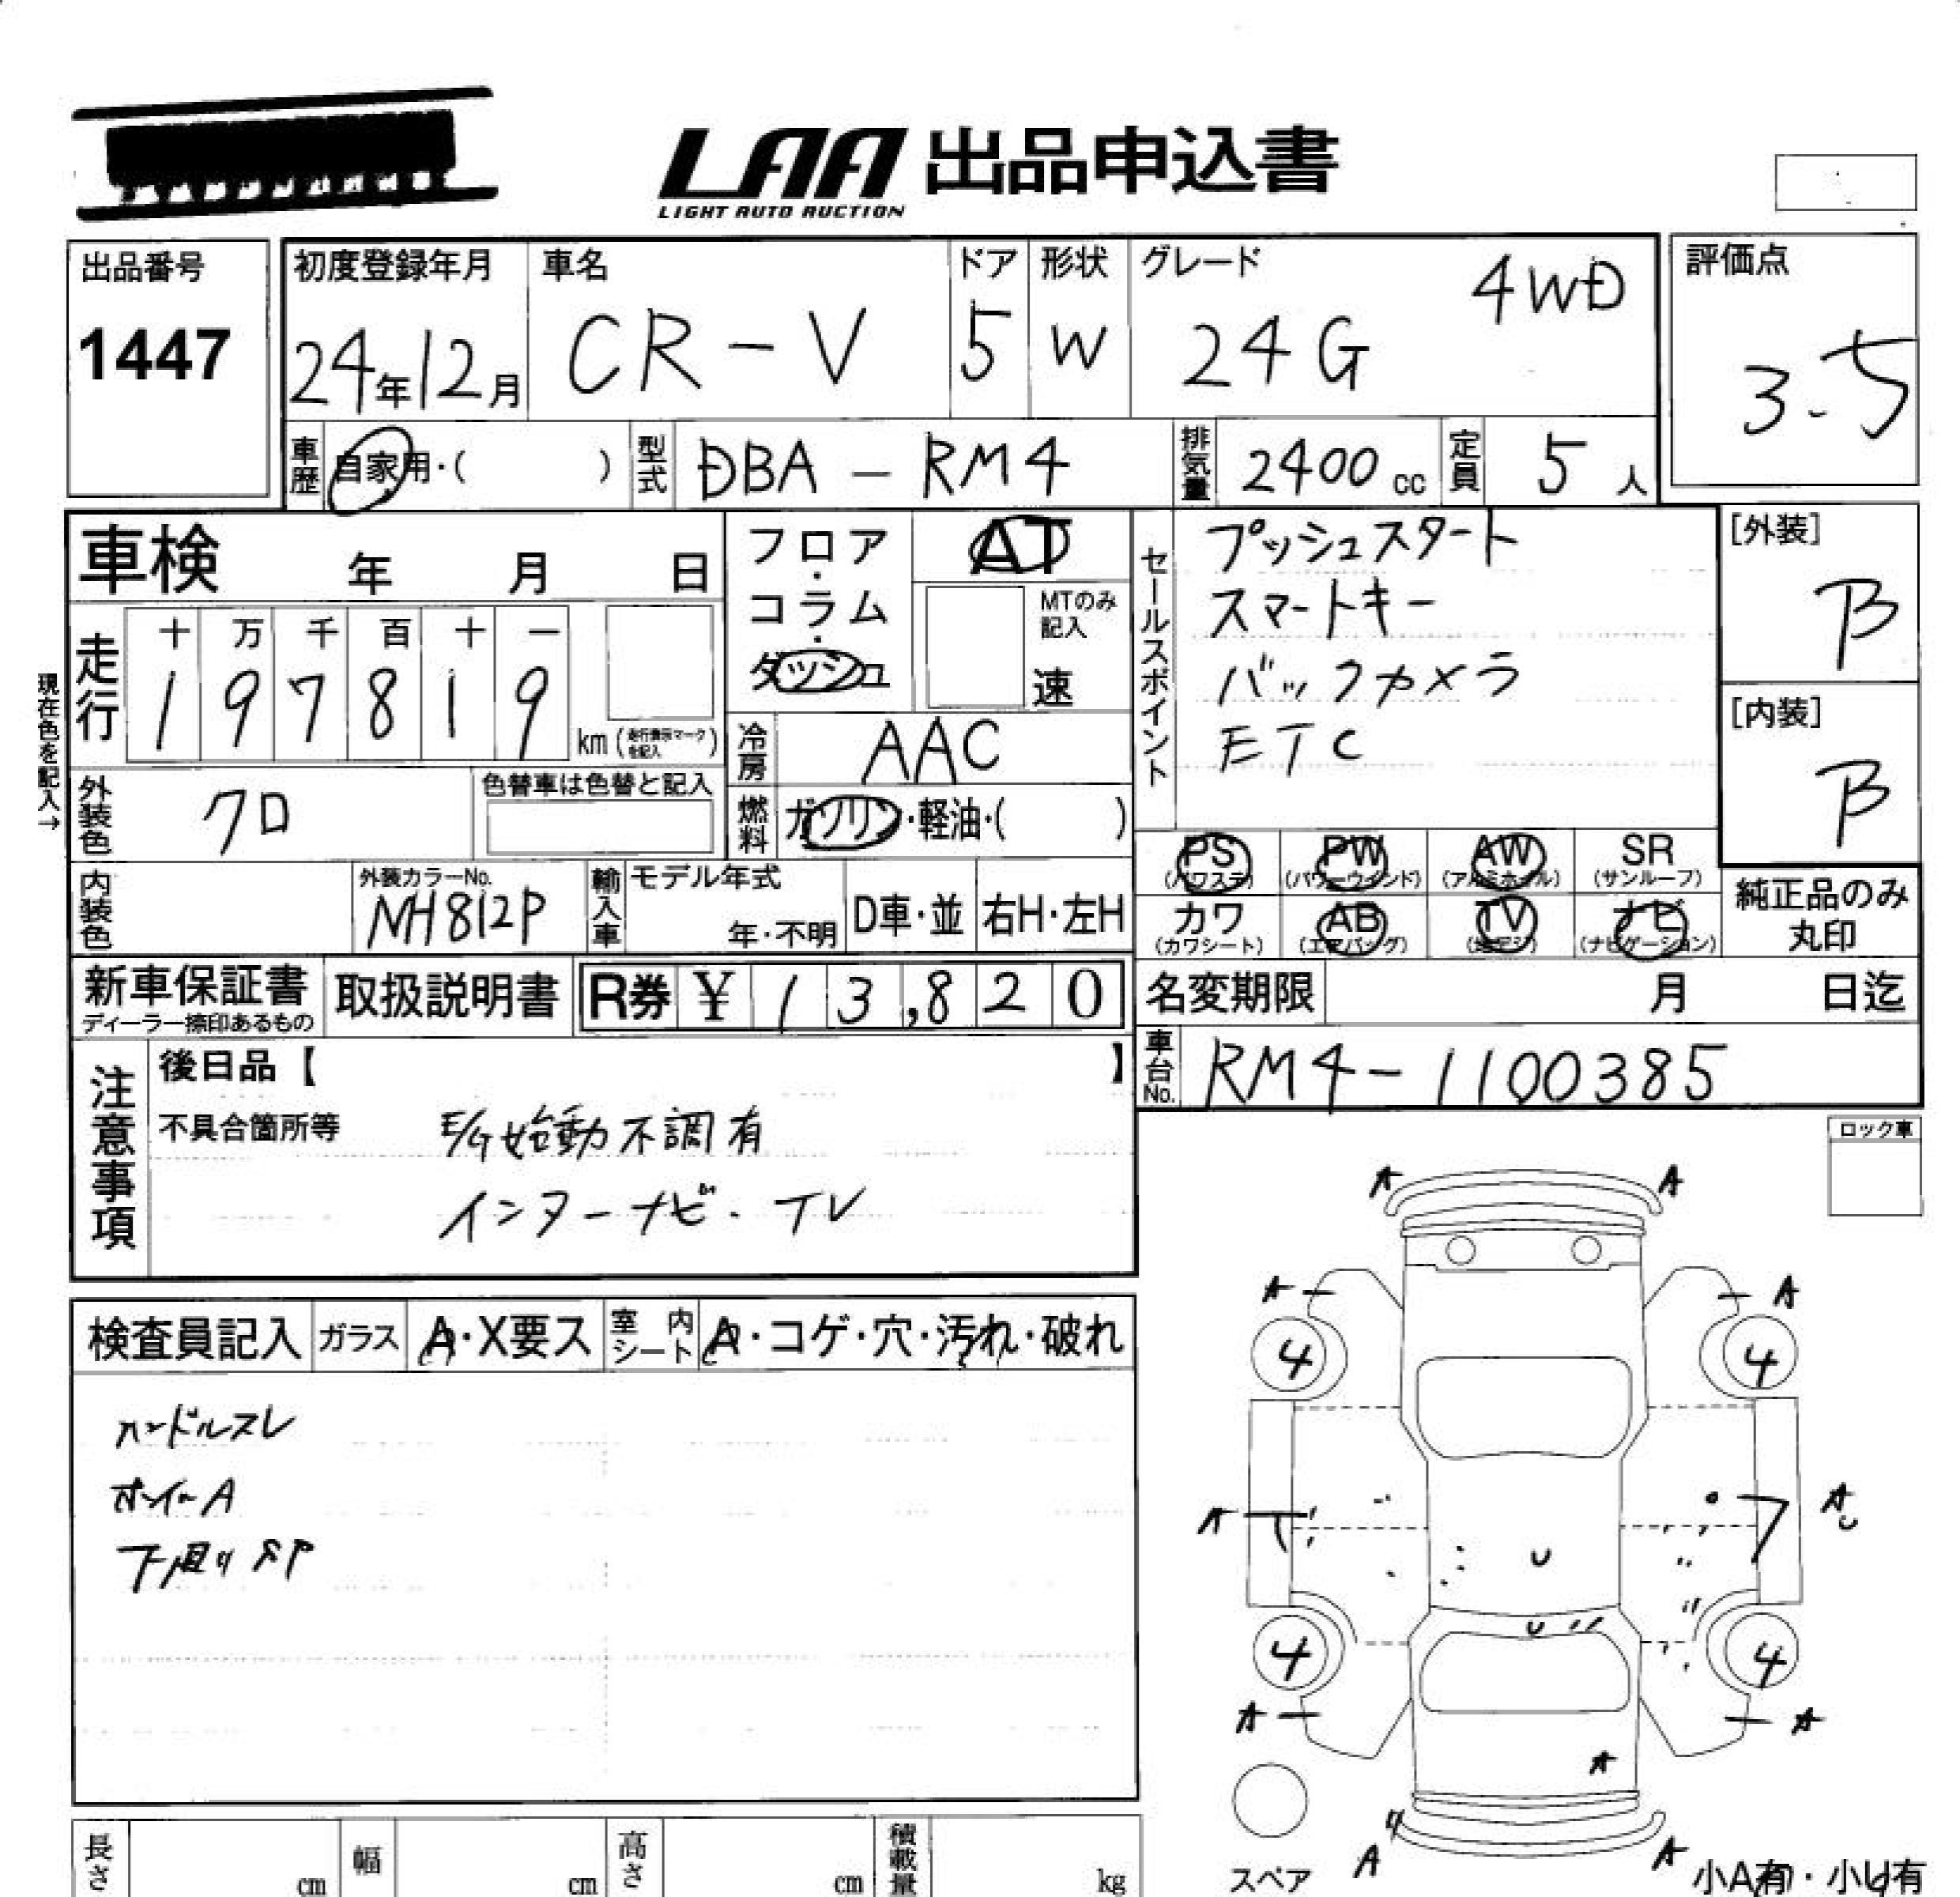 LAA 出品申込書
LIGHT AUTO AUCTION
出品番号
1447
初度登録年月
24年12月
車名
CR-V
ドア
5
形状
W
グレード
24G 4WD
評価点
3.5
車歴 自家用・( )
型式 DBA-RM4
排気量 2400cc
定員 5人
車検 年 月 日
フロア・コラム・ダッシュ
AT
MTのみ記入
速
セールスポイント
プッシュスタート
スマートキー
バックカメラ
ETC
[外装]
B
[内装]
B
現在色を記入→
走行
十 万 千 百 十 一
1 9 7 8 1 9 km (走行表示マークを記入)
冷房 AAC
外装色 クロ
色替車は色替と記入
燃料 ガソリン・軽油・( )
内装色
外装カラーNo.
NH812P
輸入車
モデル年式
年・不明
D車・並
右H・左H
PS (パワステ)
PW (パワーウインド)
AW (アルミホイル)
SR (サンルーフ)
カワ (カワシート)
AB (エアバッグ)
TV (地デジ)
ナビ (ナビゲーション)
純正品のみ
丸印
新車保証書
ディーラー捺印あるもの
取扱説明書
R券 ¥ 13,820
名変期限 月 日迄
車台No. RM4-1100385
注意事項
後日品【 】
不具合箇所等
E/G始動不調有
インターナビ・TV
ロック車
検査員記入
ガラス A・X要ス
室内シート A・コゲ・穴・汚れ・破れ
ハンドルスレ
ホイールA
下廻り
A A
A A
4 4
A A
U
U
4 4
A A
A
A A
スペア
小A有・小U有
長さ cm
幅 cm
高さ cm
積載量 kg